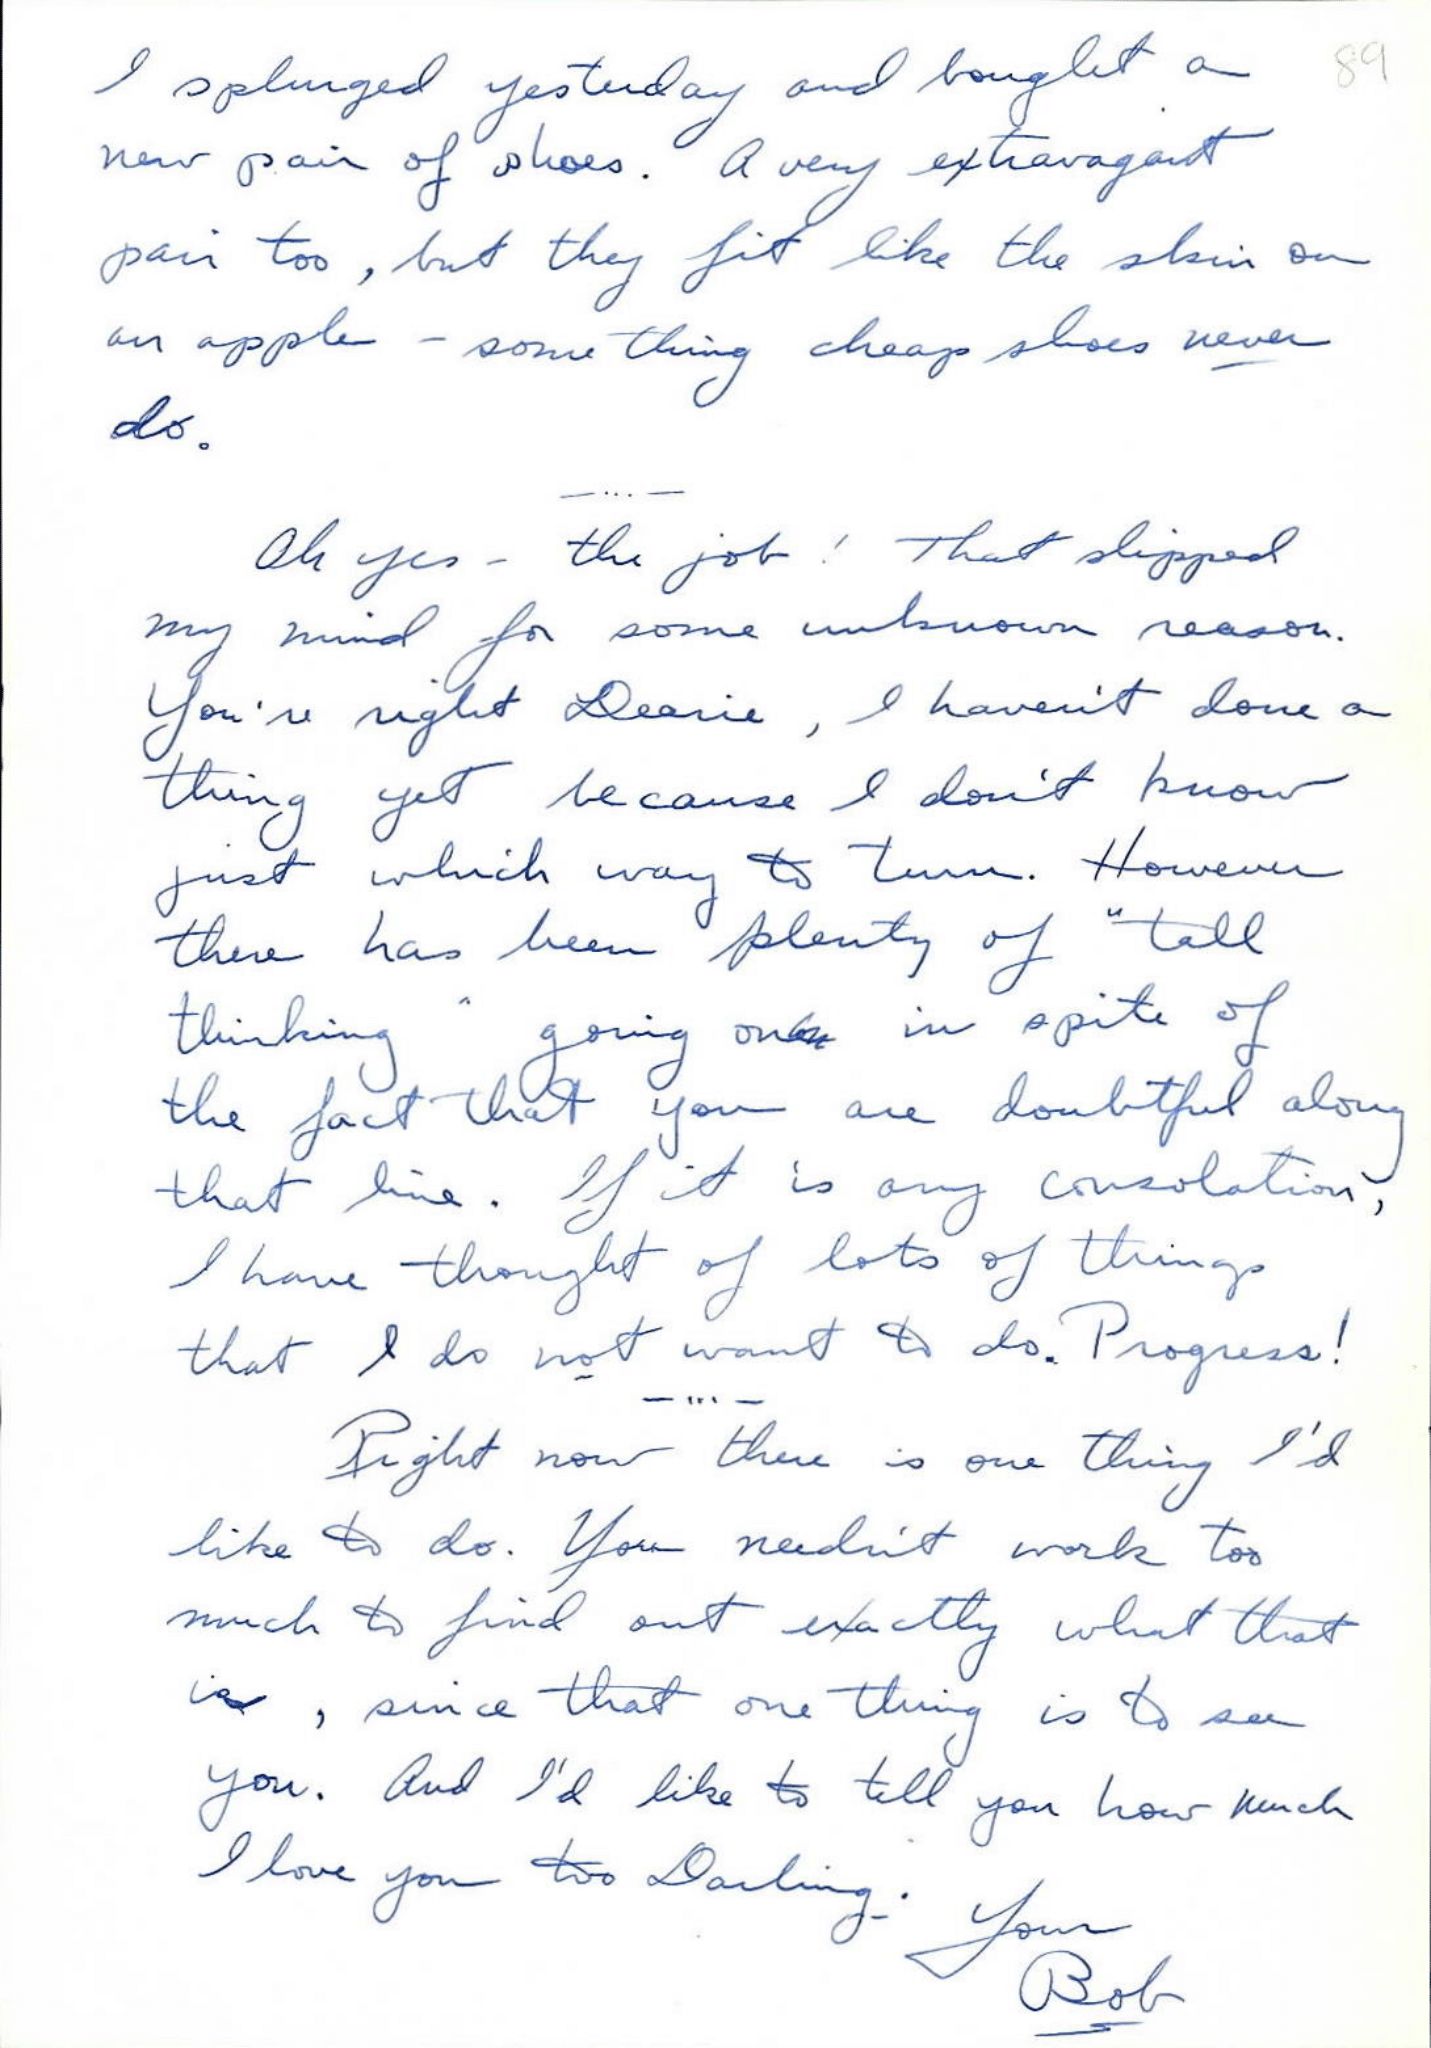 89
I splurged yesterday and bought a
new pair of shoes. A very extravagant
pair too, but they fit like the skin on
an apple - something cheap shoes never
do.
-...-
Oh yes - the job! That slipped
my mind for some unknown reason.
You're right Dearie, I haven't done a
thing yet because I don't know
just which way to turn. However
there has been plenty of "tall
thinking" going on in spite of
the fact that you are doubtful along
that line. If it is any consolation,
I have thought of lots of things
that I do not want to do. Progress!
-...-
Right now there is one thing I'd
like to do. You needn't work too
much to find out exactly what that
is, since that one thing is to see
you. And I'd like to tell you how much
I love you too Darling.
Your
Bob